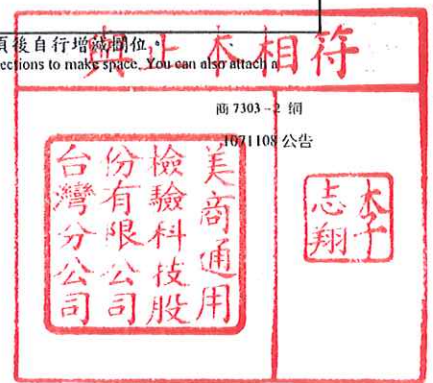 頁後自行增減欄位。
與正本相符
ections to make space. You can also attach a
商 7303 – 2 網
1071108 公告
美商通用
檢驗科技股
份有限公司
台灣分公司
李
志翔